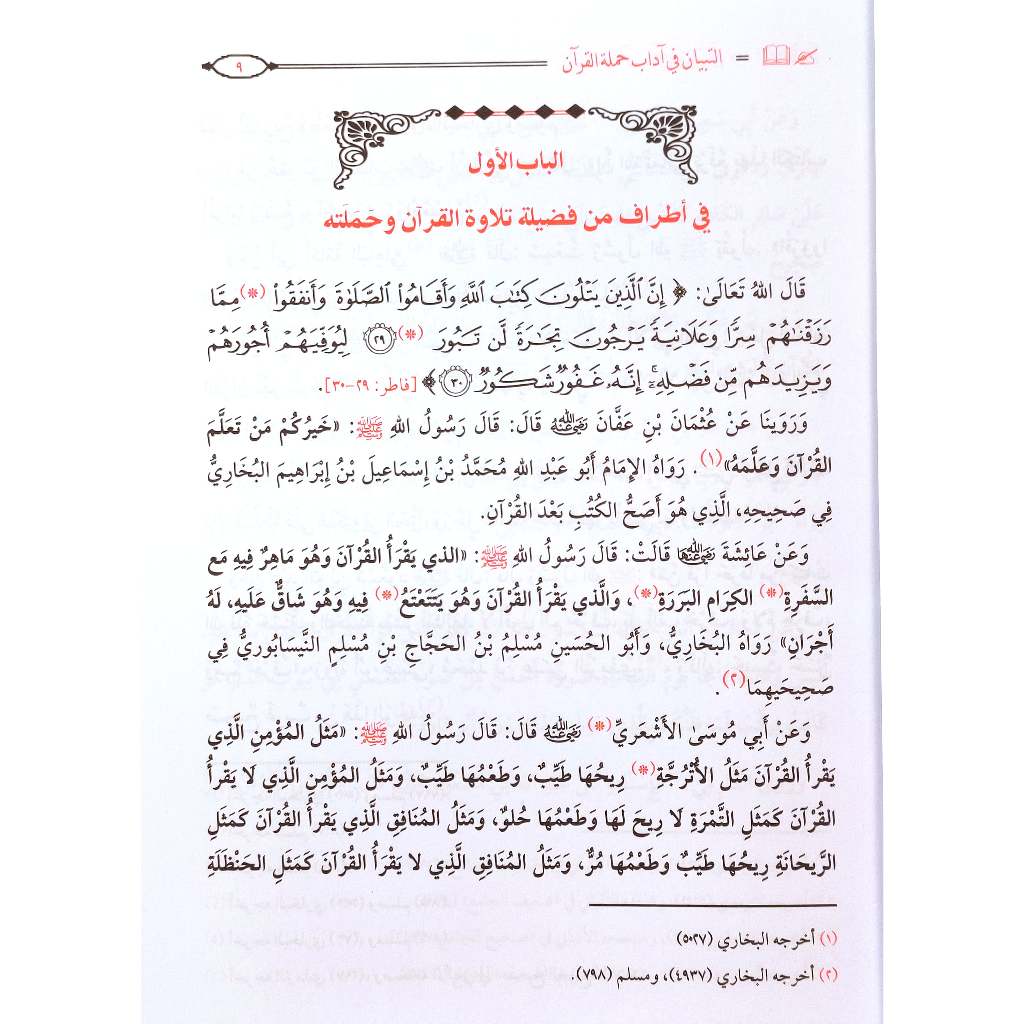 التبيان في آداب حملة القرآن = ٩
الباب الأول
في أطراف من فضيلة تلاوة القرآن وحَمَلَته
قَالَ اللهُ تَعَالَىٰ: ﴿ إِنَّ ٱلَّذِينَ يَتْلُونَ كِتَٰبَ ٱللَّهِ وَأَقَامُوا۟ ٱلصَّلَوٰةَ وَأَنفَقُوا۟ (*) مِمَّا
رَزَقْنَٰهُمْ سِرًّا وَعَلَانِيَةً يَرْجُونَ تِجَٰرَةً لَّن تَبُورَ (*) ٢٩ لِيُوَفِّيَهُمْ أُجُورَهُمْ
وَيَزِيدَهُم مِّن فَضْلِهِۦٓ إِنَّهُۥ غَفُورٌ شَكُورٌ ٣٠ ﴾ [فاطر: ٢٩-٣٠].
وَرَوَينَا عَنْ عُثْمَانَ بْنِ عَفَّانَ رضي الله عنه قَالَ: قَالَ رَسُولُ اللهِ ﷺ: «خَيرُكُمْ مَنْ تَعَلَّمَ
القُرْآنَ وَعَلَّمَهُ»(١). رَوَاهُ الإِمَامُ أَبُو عَبْدِ اللهِ مُحَمَّدُ بْنُ إِسْمَاعِيلَ بْنُ إِبْرَاهِيمَ البُخَارِيُّ
فِي صَحِيحِهِ، الَّذِي هُوَ أَصَحُّ الكُتُبِ بَعْدَ القُرْآنِ.
وَعَنْ عَائِشَةَ رضي الله عنها قَالَتْ: قَالَ رَسُولُ اللهِ ﷺ: «الذي يَقْرَأُ القُرْآنَ وَهُوَ مَاهِرٌ فِيهِ مَع
السَّفَرَةِ(*) الكِرَامِ البَرَرَةِ(*)، وَالَّذي يَقْرَأُ القُرْآنَ وَهُوَ يَتَتَعْتَعُ(*) فِيهِ وَهُوَ شَاقٌّ عَلَيهِ، لَهُ
أَجْرَانِ» رَوَاهُ البُخَارِيُّ، وَأَبُو الحُسَينِ مُسْلِمُ بْنُ الحَجَّاجِ بْنِ مُسْلِمٍ النَّيسَابُورِيُّ فِي
صَحِيحَيهِمَا(٢).
وَعَنْ أَبِي مُوسَىٰ الأَشْعَرِيِّ(*) رضي الله عنه قَالَ: قَالَ رَسُولُ اللهِ ﷺ: «مَثَلُ المُؤْمِنِ الَّذِي
يَقْرَأُ القُرْآنَ مَثَلُ الأُتْرُجَّةِ(*) رِيحُهَا طَيِّبٌ، وَطَعْمُهَا طَيِّبٌ، وَمَثَلُ المُؤْمِنِ الَّذِي لَا يَقْرَأُ
القُرْآنَ كَمَثَلِ التَّمْرَةِ لَا رِيحَ لَهَا وَطَعْمُهَا حُلوٌ، وَمَثَلُ المُنَافِقِ الَّذِي يَقْرَأُ القُرْآنَ كَمَثَلِ
الرَّيحَانَةِ رِيحُهَا طَيِّبٌ وَطَعْمُهَا مُرٌّ، وَمَثَلُ المُنَافِقِ الَّذِي لا يَقْرَأُ القُرْآنَ كَمَثَلِ الحَنْظَلَةِ
(١) أخرجه البخاري (٥٠٢٧)
(٢) أخرجه البخاري (٤٩٣٧)، ومسلم (٧٩٨).